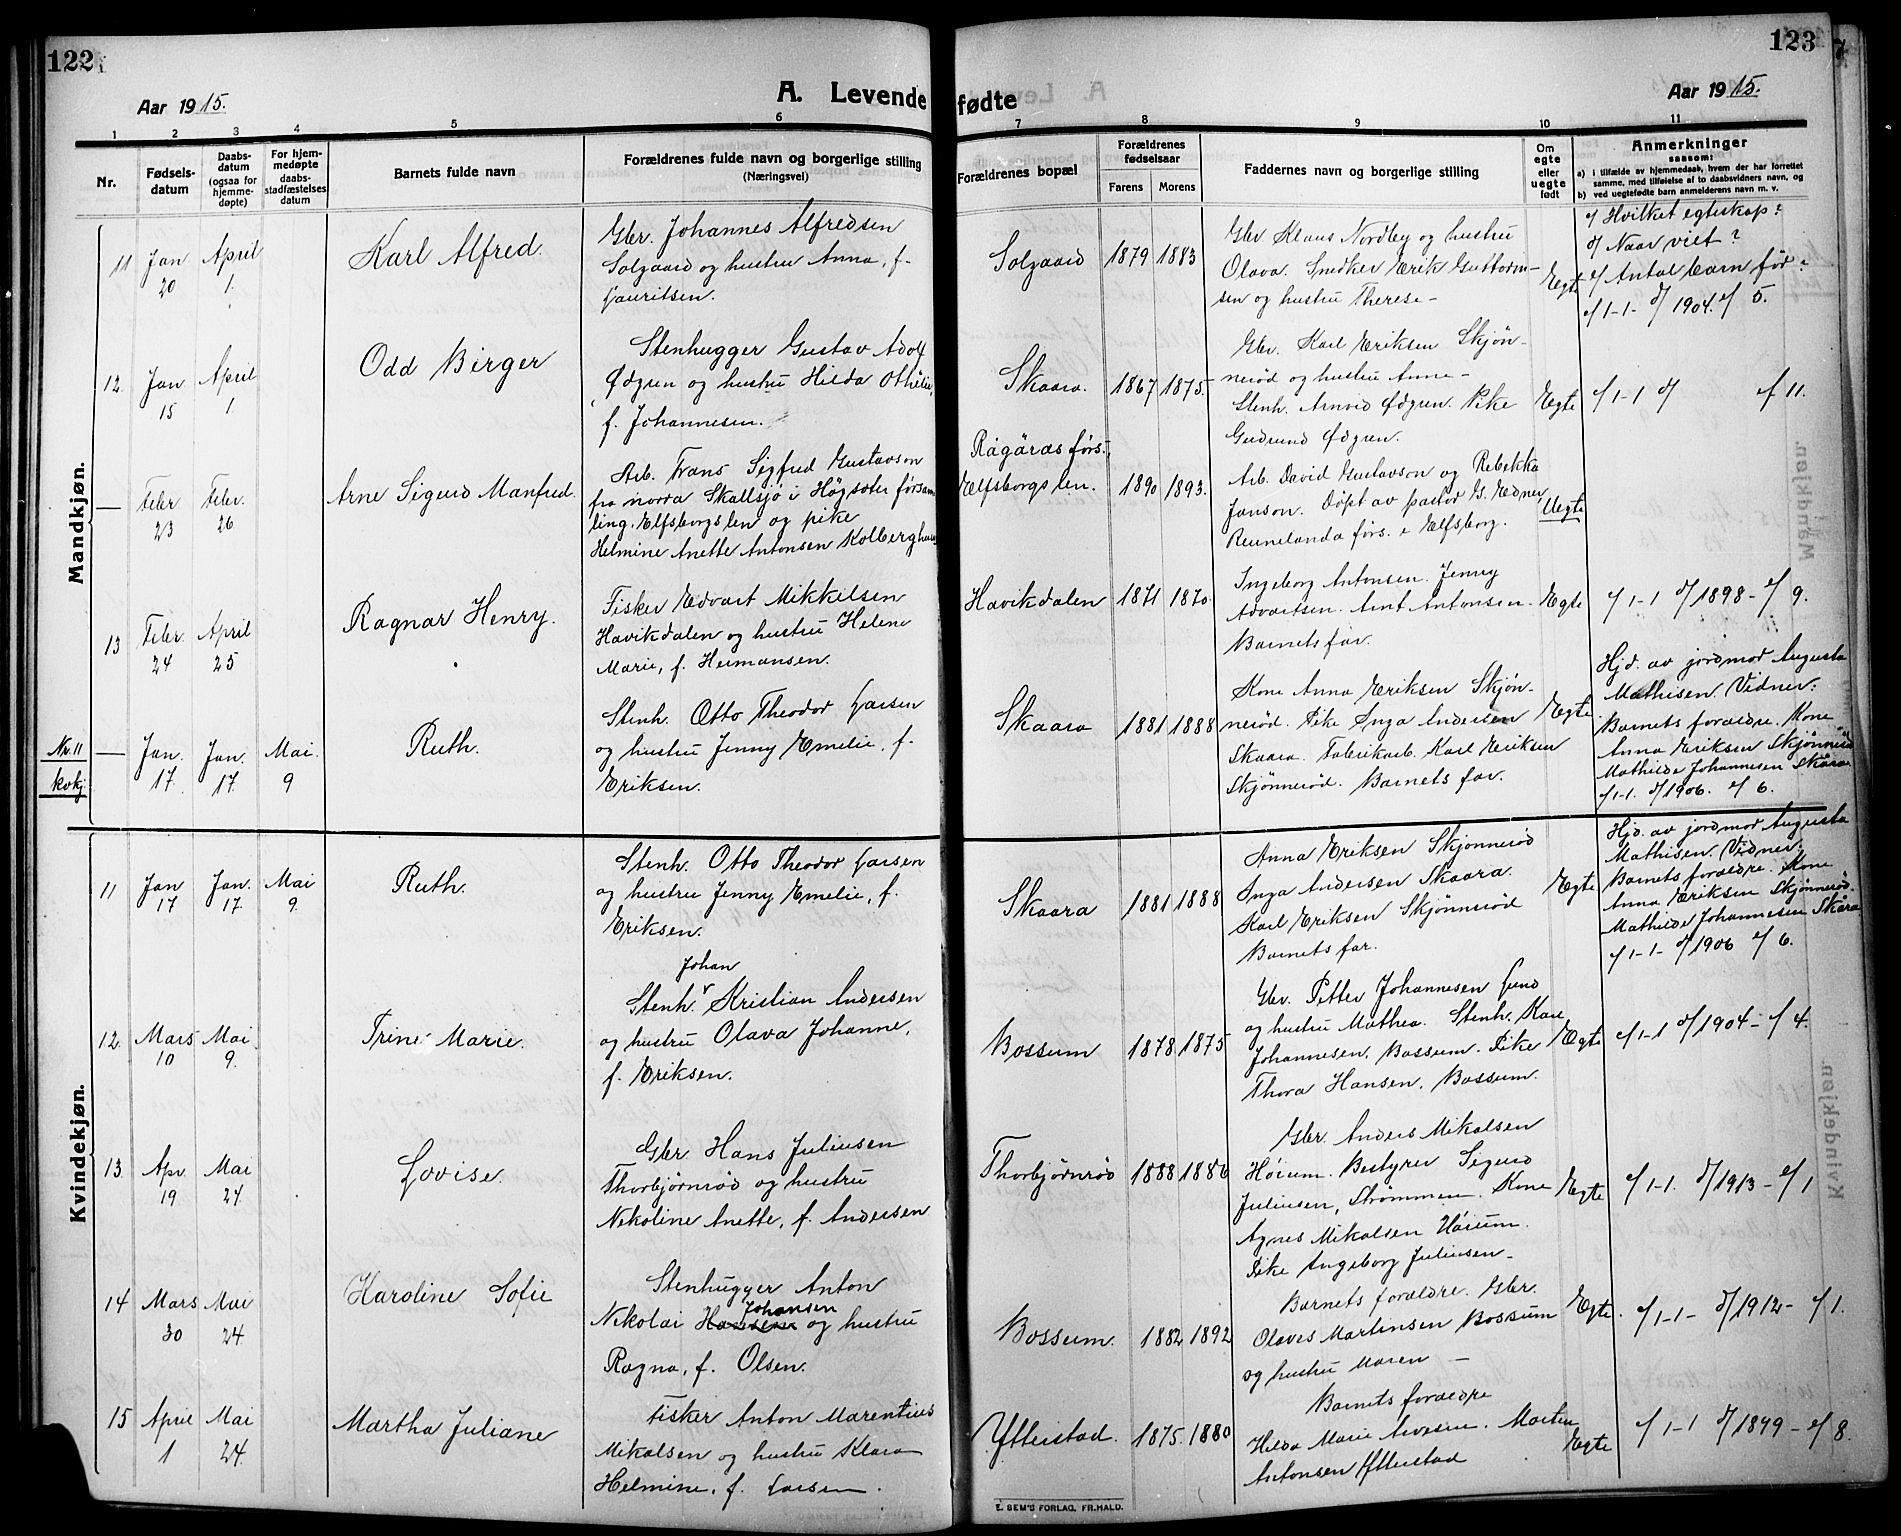 122
123
Aar 1915.
A. Levende fødte
Aar 1915.
1 2 3 4 5 6 7 8 9 10 11
Nr.
Fødsels-
datum
Daabs-
datum
(ogsaa for
hjemme-
døpte)
For hjem-
medøpte
daabs-
stadfæstelses
datum
Barnets fulde navn
Forældrenes fulde navn og borgerlige stilling
(Næringsvei)
Forældrenes bopæl
Forældrenes
fødselsaar
Farens
Morens
Faddernes navn og borgerlige stilling
Om
egte
eller
uegte
født
Anmerkninger
saasom:
a) i tilfælde av hjemmedaab, hvem der har forrettet
samme, med tilføielse af to daabsvidners navn, og
b) ved uegtefødte barn anmelderens navn m. v.
Mandkjøn.
11
Jan
20
April
1.
Karl Alfred.
Gbr. Johannes Alfredsen
Solgaard og hustru Anna, f.
Lauritsen.
Solgaard
1879
1883
Gbr Klaus Nordby og hustru
Olava. Snedker Erik Guttorm-
sen og hustru Therese-
Egte
c/ Hvilket egteskap?
d/ Naar viet?
e/ Antal barn før?
c/ 1-1- d/ 1904. e/ 5.
12.
Jan
15
April
1.
Odd Birger
Stenhugger Gustav Adolf
Ødgren og hustru Hilda Othelie,
f. Johannesen.
Skaara.
1867
1875.
Gbr. Karl Eriksen Skjøn-
nerød og hustru Anne-
Stenh. Arnvid Ødgren. Pike
Gudrund Ødgren.
Egte
c/ 1-1 d/ e/ 11.
—
Febr
23
Febr.
26
Arne Sigurd Manfred.
Arb. Frans Sigfred Gustavson
fra norra Skallsjø i Høgsäter försam
ling. Elfsborgs len og pike
Helmine Anette Antonsen Kolberghaug
Rågäras førs.,
Elfsborgs len.
1890
1893.
Arb. David Gustavson og Rebekka
Janson. Döpt av pastor G. Edner
Reunelanda førs. i Elfsborg.
Uegte
13
Febr
24
April
25
Ragnar Henry.
Fisker Edvart Mikkelsen
Havikdalen og hustru Helene
Marie, f. Hermansen.
Havikdalen
1871
1870
Ingeborg Antonsen. Jenny
Edvartsen. Arnt Antonsen.
Barnets far.
Egte
c/ 1-1 d/ 1898- e/ 9.
Nr. 11
kvkj.
—
Jan.
17.
Jan.
17.
Mai.
9
Ruth.
Stenh. Otto Theodor Larsen
og hustru Jenny Emelie, f.
Eriksen.
Skaara
1881
1888
Kone Anna Eriksen Skjøn-
nerød. Pike Inga Andersen
Skaara. Fabrikarb. Karl Eriksen
Skjønnerød. Barnets far.
Egte
Hjd. av jordmor Augusta
Mathisen. Vidner:
Barnets forældre. Kone
Anna Eriksen Skjønnerød
Mathilde Johannesen Skåra
c/ 1-1. d/ 1906. e/ 6.
Kvindekjøn.
11
Jan
17
Jan.
17.
Mai
9.
Ruth.
Stenh. Otto Theodor Larsen
og hustru Jenny Emelie, f.
Eriksen.
Skaara
1881
1888
Anna Eriksen Skjønnerød
Inga Andersen Skaara.
Karl Eriksen Skjønnerød
Barnets far.
Egte
Hjd. av jordmor Augusta
Mathisen. Vidner:
Barnets forældre. Kone
Anna Eriksen Skjønnerød.
Mathilde Johannesen Skåra
c/ 1-1- d/ 1906 e/ 6.
12.
Mars
10
Mai
9.
Trine Marie.
Johan
Stenh. Kristian Andersen
og hustru Olava Johanne,
f. Eriksen.
Bossum
1878
1875
Gbr. Petter Johannesen Lund
og hustru Mathea. Stenh. Kare
Johannesen, Bossum. Pike
Thora Hansen, Bossum.
Egte
c/ 1-1 d/ 1904- e/ 4.
13
Apr.
19
Mai
24
Lovise.
Gbr. Hans Juliusen
Thorbjørnrød og hustru
Nikoline Anette, f. Andersen
Thorbjørnrød
1888
1886
Gbr. Anders Mikalsen
Hørum. Bestyrer Sigurd
Juliusen, Strømmen. Kone
Agnes Mikalsen Hørum.
Pike Angeborg Juliusen-
Egte
c/ 1-1. d/ 1913- e/ 1
14
Mars
30
Mai
24
Karoline Sofie
Stenhugger Anton
Johansen
Nikolai Hansen og hustru
Ragna, f. Olsen.
Bossum.
1882
1892
Barnets forældre. Gbr.
Olaves Martinsen Bossum
og hustru Maren —
Egte.
c/ 1-1- d/ 1912- e/ 1.
15
April
1
Mai
24
Martha Juliane
Fisker Anton Marentius
Mikalsen og hustru Klara
Helmine, f. Larsen.
Ytterstad.
1875.
1880
Barnets forældre
Hilda Marie Arvesen. Morten
Antonsen Ytterstad
Egte
c/ 1-1 d/ 1899- e/ 8.
E. SEM'S FORLAG, FR.HALD.